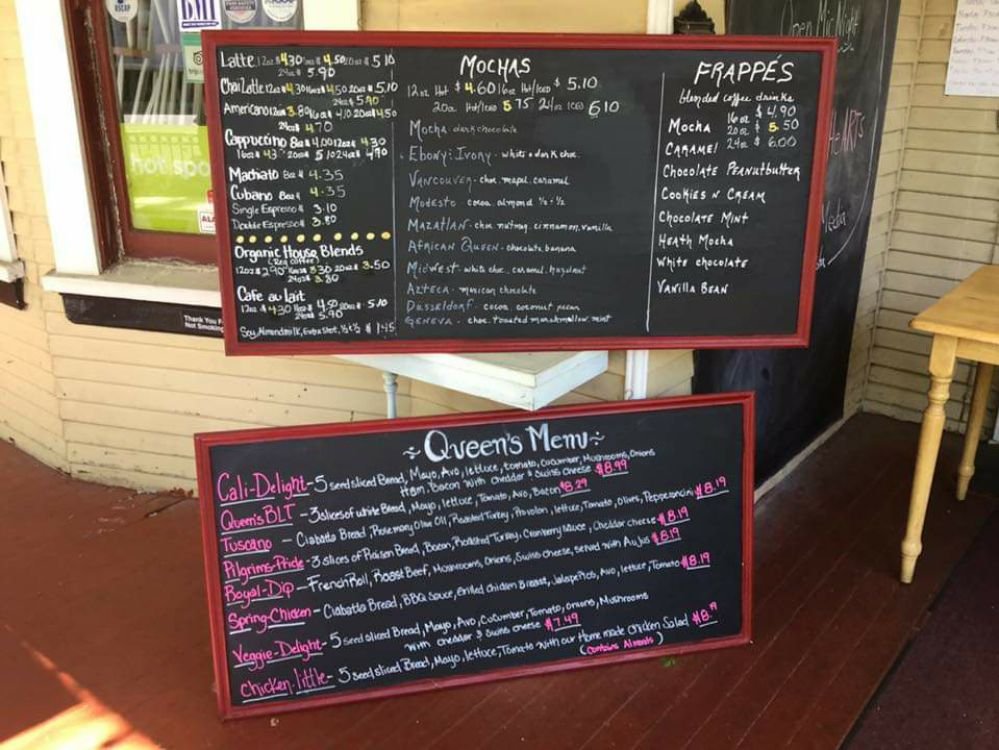 ASCAP
BMI
hot spo
Thank You F
Not Smoking
Open Mic Night
Latte 12oz $4.30 16oz $4.50 20oz $5.10
24oz $5.90
Chai Latte 12oz $4.30 16oz $4.50 20oz $5.10
24oz $5.90
Americano 12oz $3.80 16oz $4.10 20oz $4.50
24oz $4.70
Cappuccino 8oz $4.00 12oz $4.30
20oz 5.10 24oz
Machato 8oz $4.35
Cubano 8oz $4.35
Single Espresso $3.10
Double Espresso $3.80
Organic House Blends
(Reg Coffee)
12oz $2.90 16oz $3.30 20oz $3.50
24oz $3.80
Cafe au lait
12oz $4.30 16oz $4.50 20oz $5.10
24oz $5.90
Soy, Almondmilk, Extra Shot, ½+½ $1.45
MOCHAS
12oz Hot $4.60 16oz Hot/Iced $5.10
20oz Hot/Iced 5.75 24oz Iced 6.10
Mocha - dark chocolate
Ebony & Ivory - white + dark choc
Vancouver - choc, mapel, caramel
Modesto - cocoa, almond ½ + ½
Mazatlan - choc nutmeg, cinnamon, vanilla
African Queen - chocolate, banana
Midwest - white choc, caramel, hazelnut
Azteca - mexican chocolate
Dusseldorf - cocoa, coconut, pecan
Geneva - choc, toasted marshmallow, mint
FRAPPÉS
blended coffee drinks
16oz $4.90
Mocha 20oz $5.50
24oz $6.00
Caramel
Chocolate Peanutbutter
Cookies n Cream
Chocolate Mint
Heath Mocha
White chocolate
Vanilla Bean
~Queen's Menu~
Cali-Delight - 5 seed sliced Bread, Mayo, Avo, lettuce, tomato, Cucumber, Mushrooms, Onions
Ham, Bacon with cheddar & Swiss cheese $8.99
Queen's BLT - 3 slices of white Bread, Mayo, lettuce, Tomato, Avo, Bacon $8.29
Tuscano - Ciabatta Bread, Rosemary Olive Oil, Roasted Turkey, Provolon, lettuce, Tomato, Olives, Pepperoncini $8.19
Pilgrims-Pride - 3 slices of Raisen Bread, Bacon, Roasted Turkey, Cranberry Sauce, Cheddar cheese $8.19
Royal-Dip - French Roll, Roast Beef, Mushrooms, Onions, Swiss cheese, served with Au Jus $8.19
Spring-Chicken - Ciabatta Bread, BBQ Sauce, Grilled chicken Breast, Jalapeños, Avo, lettuce, Tomato $8.19
Veggie-Delight - 5 seed sliced Bread, Mayo, Avo, Cucumber, Tomato, onions, Mushrooms
with cheddar & Swiss cheese $7.49
Chicken-little - 5 seed sliced Bread, Mayo, lettuce, Tomato with our Home made Chicken Salad
(Contains Almonds)